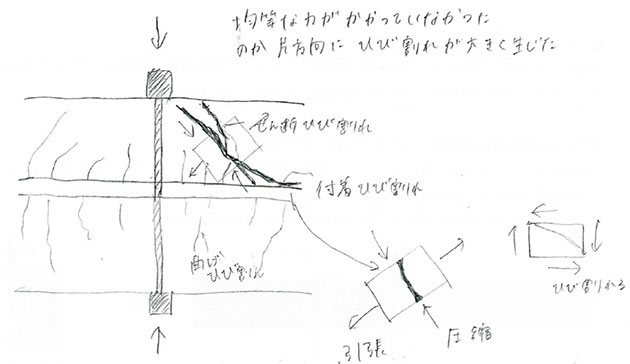 均等な力がかかっていなかった
のか片方向にひび割れが大きく生じた
せん断ひび割れ
付着ひび割れ
曲げ
ひび割れ
引張
圧縮
ひび割れる